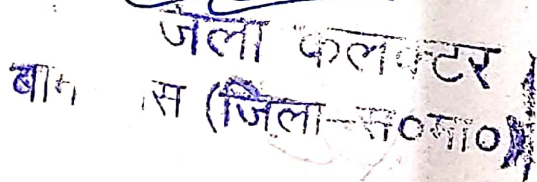 जिला कलक्टर
(जिला-स०मा०)